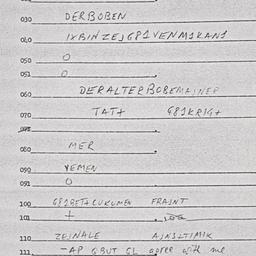 030 DERBOBEN
040 IXBINZEJG81VENMIKANI
050 O
051 O
060 DERALTERBOBEMAINER
070 TAT+ G81KRIG+
080 MER
090 YEMEN
091 O
100 G81BET+CUKUMEN FRAINT
101 +
110 ZEJNALE AJNSLTIMIK
111 -AP GBUT GL agree with me